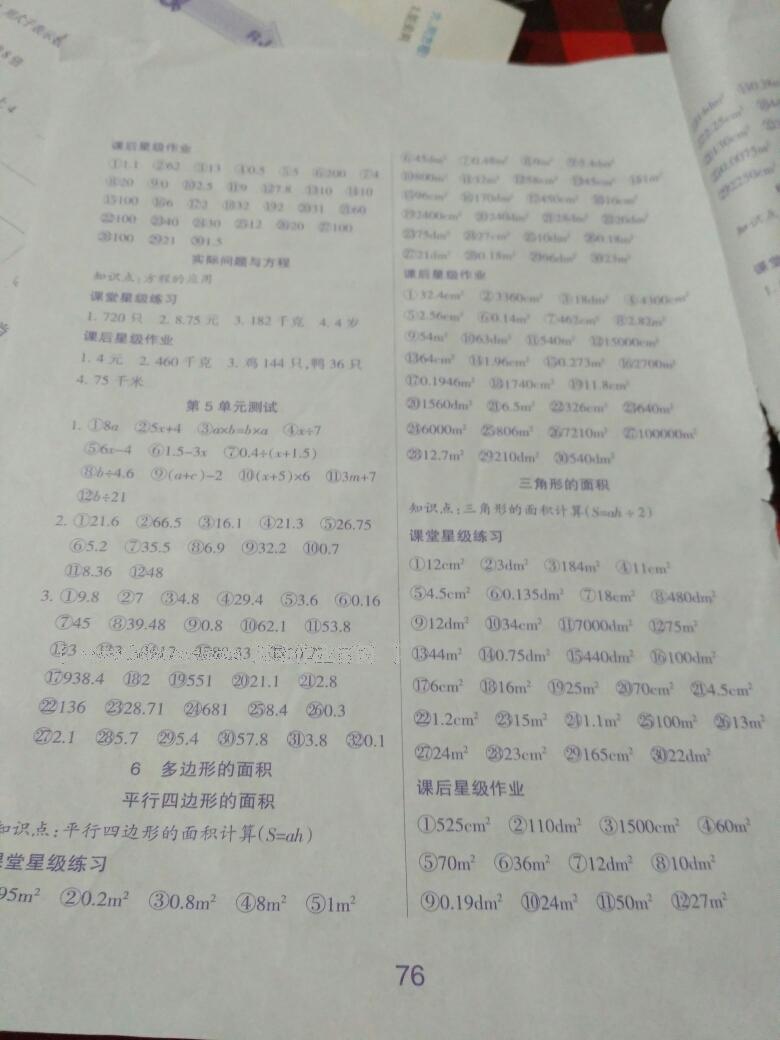 课后星级作业
①1.1 ②62 ③13 ④0.5 ⑤5 ⑥200 ⑦4
⑧20 ⑨0 ⑩2.5 ⑪9 ⑫7.8 ⑬10 ⑭10
⑮100 ⑯6 ⑰2 ⑱32 ⑲2 ⑳31 ㉑60
㉒100 ㉓40 ㉔30 ㉕12 ㉖20 ㉗100
㉘100 ㉙21 ㉚1.5
实际问题与方程
知识点:方程的应用
课堂星级练习
1. 720只 2. 8.75元 3. 182千克 4. 4岁
课后星级作业
1. 4元 2. 460千克 3. 鸡144只,鸭36只
4. 75千米
第5单元测试
1. ①8a ②5x+4 ③a×b=b×a ④x÷7
⑤6x−4 ⑥1.5−3x ⑦0.4÷(x+1.5)
⑧b÷4.6 ⑨(a+c)−2 ⑩(x+5)×6 ⑪3m+7
⑫b÷21
2. ①21.6 ②66.5 ③16.1 ④21.3 ⑤26.75
⑥5.2 ⑦35.5 ⑧6.9 ⑨32.2 ⑩0.7
⑪8.36 ⑫48
3. ①9.8 ②7 ③4.8 ④29.4 ⑤3.6 ⑥0.16
⑦45 ⑧39.48 ⑨0.8 ⑩62.1 ⑪53.8
⑰938.4 ⑱2 ⑲551 ⑳21.1 ㉑2.8
㉒136 ㉓28.71 ㉔681 ㉕8.4 ㉖0.3
㉗2.1 ㉘5.7 ㉙5.4 ㉚57.8 ㉛3.8 ㉜0.1
6 多边形的面积
平行四边形的面积
知识点:平行四边形的面积计算(S=ah)
课堂星级练习
95m² ②0.2m² ③0.8m² ④8m² ⑤1m²
⑥45dm² ⑦0.48m² ⑧9m² ⑨5.4dm²
⑩800m² ⑪12m² ⑫58cm² ⑬45cm² ⑭1m²
⑮96cm² ⑯170dm² ⑰450cm² ⑱16cm²
⑲2400cm² ⑳240dm² ㉑28dm² ㉒20dm²
㉓75dm² ㉔27cm² ㉕10dm² ㉖0.18m²
㉗21dm² ㉘0.15m² ㉙96dm² ㉚23m²
课后星级作业
①32.4cm² ②3360cm² ③18dm² ④4300cm²
⑤2.56cm² ⑥0.14m² ⑦462cm² ⑧2.82m²
⑨54m² ⑩63dm² ⑪540m² ⑫15000cm²
⑬64cm² ⑭1.96cm² ⑮0.273m² ⑯2700m²
⑰0.1946m² ⑱1740cm² ⑲11.8cm²
⑳1560dm² ㉑6.5m² ㉒326cm² ㉓640m²
㉔6000m² ㉕806m² ㉖7210m² ㉗100000m²
㉘12.7m² ㉙210dm² ㉚540dm²
三角形的面积
知识点:三角形的面积计算(S=ah÷2)
课堂星级练习
①12cm² ②3dm² ③184m² ④11cm²
⑤4.5cm² ⑥0.135dm² ⑦18cm² ⑧480dm²
⑨12dm² ⑩34cm² ⑪7000dm² ⑫75m²
⑬44m² ⑭0.75dm² ⑮440dm² ⑯100dm²
⑰6cm² ⑱16m² ⑲25m² ⑳70cm² ㉑4.5cm²
㉒1.2cm² ㉓15m² ㉔1.1m² ㉕100m² ㉖13m²
㉗24m² ㉘23cm² ㉙165cm² ㉚22dm²
课后星级作业
①525cm² ②110dm² ③1500cm² ④60m²
⑤70m² ⑥36m² ⑦12dm² ⑧10dm²
⑨0.19dm² ⑩24m² ⑪50m² ⑫27m²
76
RJ